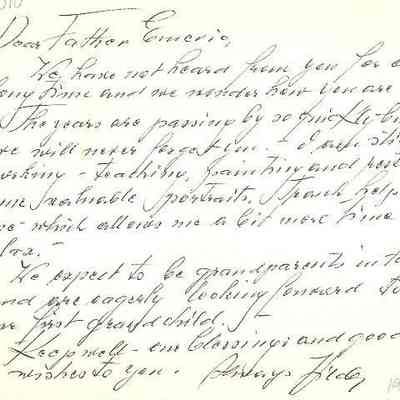 Dear Father Emeric,
We have not heard from you for a
long time and we wonder how you are
The years are passing by so quickly bu
we will never forget you. - I am sti
working - teaching, painting and rest
some valuable portraits. Frank help
me - which allows me a bit more time
relax. -
We expect to be grandparents in
and are eagerly looking forward to
our first grandchild. -
Keep well - our blessings and good
wishes to you. Always